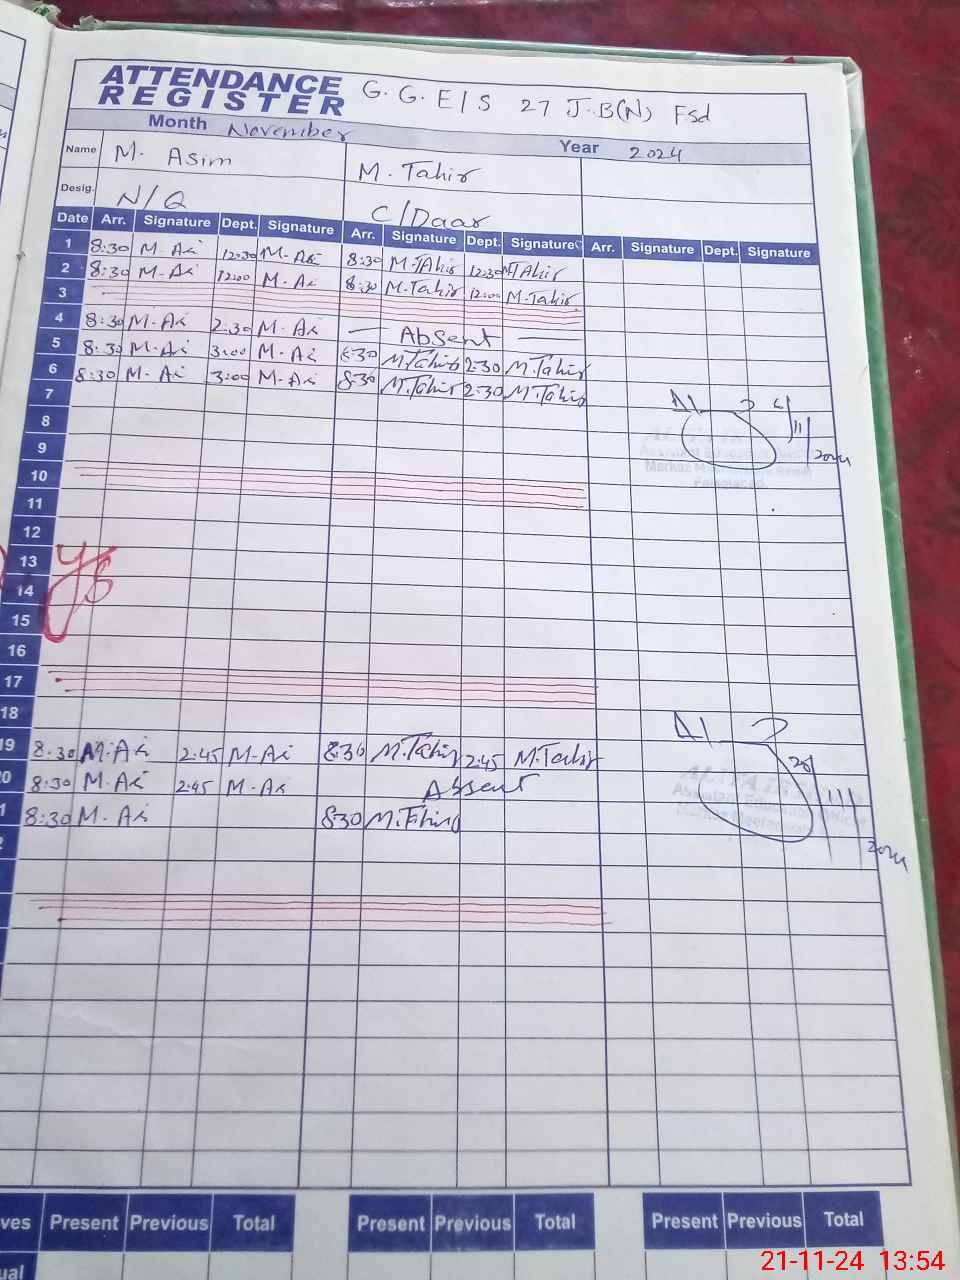 ATTENDANCE REGISTER G.G.E/S 27 J.B(N) Fsd
Month November Year 2024
Name M. Asim M. Tahir
Desig. N/Q C/Daar
Date Arr. Signature Dept. Signature Arr. Signature Dept. Signature Arr. Signature Dept. Signature
1 8:30 M-Ai 12:30 M-Ai 8:30 M.Tahir 12:30 M.Tahir
2 8:30 M-Ai 12:00 M-Ai 8:30 M.Tahir 12:00 M.Tahir
3
4 8:30 M-Ai 2:30 M-Ai — Absent —
5 8:30 M-Ai 3:00 M-Ai 8:30 M.Tahir 2:30 M.Tahir
6 8:30 M-Ai 3:00 M-Ai 8:30 M.Tahir 2:30 M.Tahir
7
8
9
10
11
12
13
14
15
16
17
18
19 8:30 M-Ai 2:45 M-Ai 8:30 M.Tahir 2:45 M.Tahir
20 8:30 M-Ai 2:45 M-Ai Absent
1 8:30 M-Ai 8:30 M.Tahir
2
6/11/2024
Assistant Education Officer
Markaz
Faisalabad
20/11/2024
Assistant Education Officer
Markaz
ves Present Previous Total Present Previous Total Present Previous Total
ual
21-11-24 13:54